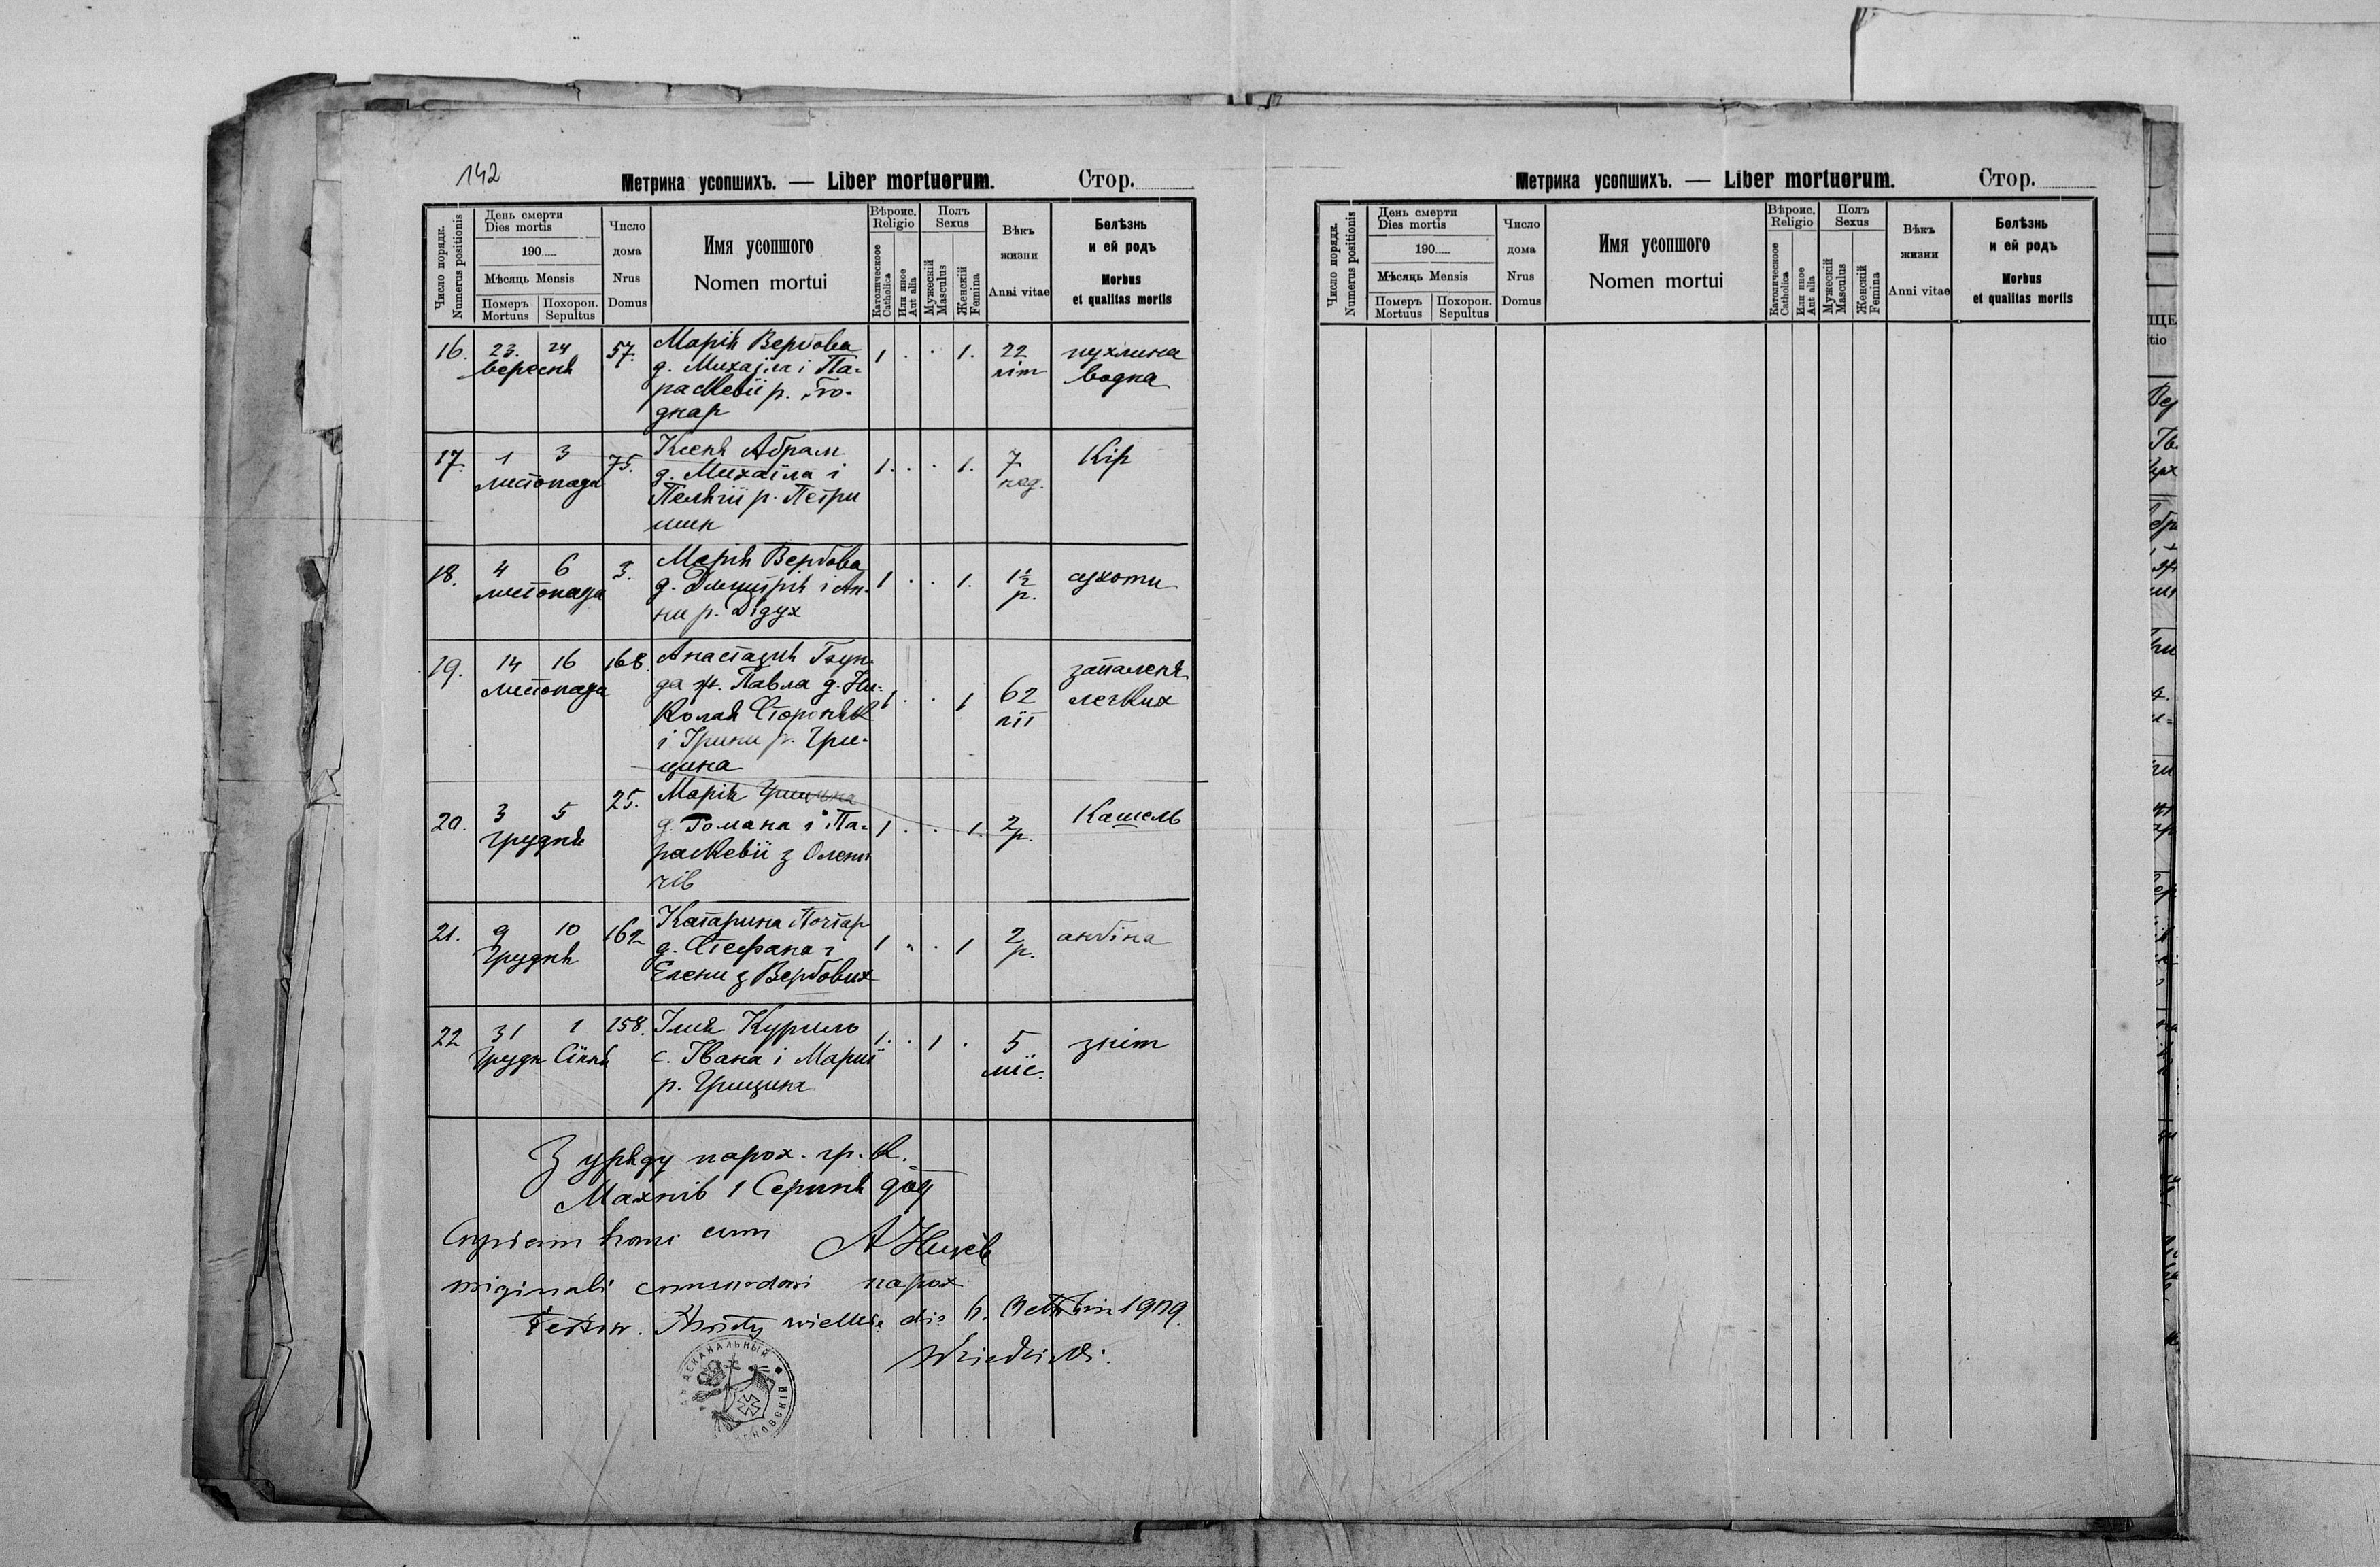 142
Метрика усопшихъ. — Liber mortuorum. Стор.
Число порядк. Numerus positionis
День смерти Dies mortis
190
Мѣсяць Mensis
Померъ Mortuus
Похорон. Sepultus
Число дома Nrus Domus
Имя усопшого Nomen mortui
Вѣроис. Religio
Католическоое Catholica
Или иное Aut alia
Полъ Sexus
Мужескій Masculus
Женскій Femina
Вѣкъ жизни Anni vitae
Болѣзнь и ей родъ Morbus et qualitas mortis
16. 23. 24 57. Марія Вербова 1 . . 1. 22 пухлина
вересня д. Михаіла і Па- літ водна
раскевії р.
17. 1 3 75. Ксеня Абрам 1. . . 1. 7 Кір
листопада д. Михаіла і нед.
Пелягії р. Петри
шин
18. 4 6 3. Марія Вербова 1 . . 1. 1½ сухоти
листопада д. Димитрія і Ан- р.
ни р. Дідух
19. 14 16 168. Анастазия 1 . . 1 62 запаленя
листопада да ж. Павла д. Ни- літ легких
колая
і Ірини р. Гри-
цина
20. 3 5 25. Марія Грицина 1 . . 1. 2 Кашель
грудня д. Романа і Па- р.
раскевії з
чів
21. 9 10 162 Катарина Почтар 1 . . 1 2 анґіна
Грудня д. Стефана і р.
Елени з Вербових
22 31 1 158. Ілия Курило 1. . 1 . 5 зніт
Грудн Січня с. Івана і Марії міс.
р. Грицина
З уряду парох. гр. к.
Махнів 1 Серпня 909
Copiam hanc cum
originali concordare парох
1909.
ДЕКАНАЛЬНЫЙ
Метрика усопшихъ. — Liber mortuorum. Стор.
Число порядк. Numerus positionis
День смерти Dies mortis
190
Мѣсяць Mensis
Померъ Mortuus
Похорон. Sepultus
Число дома Nrus Domus
Имя усопшого Nomen mortui
Вѣроис. Religio
Католическоое Catholica
Или иное Aut alia
Полъ Sexus
Мужескій Masculus
Женскій Femina
Вѣкъ жизни Anni vitae
Болѣзнь и ей родъ Morbus et qualitas mortis